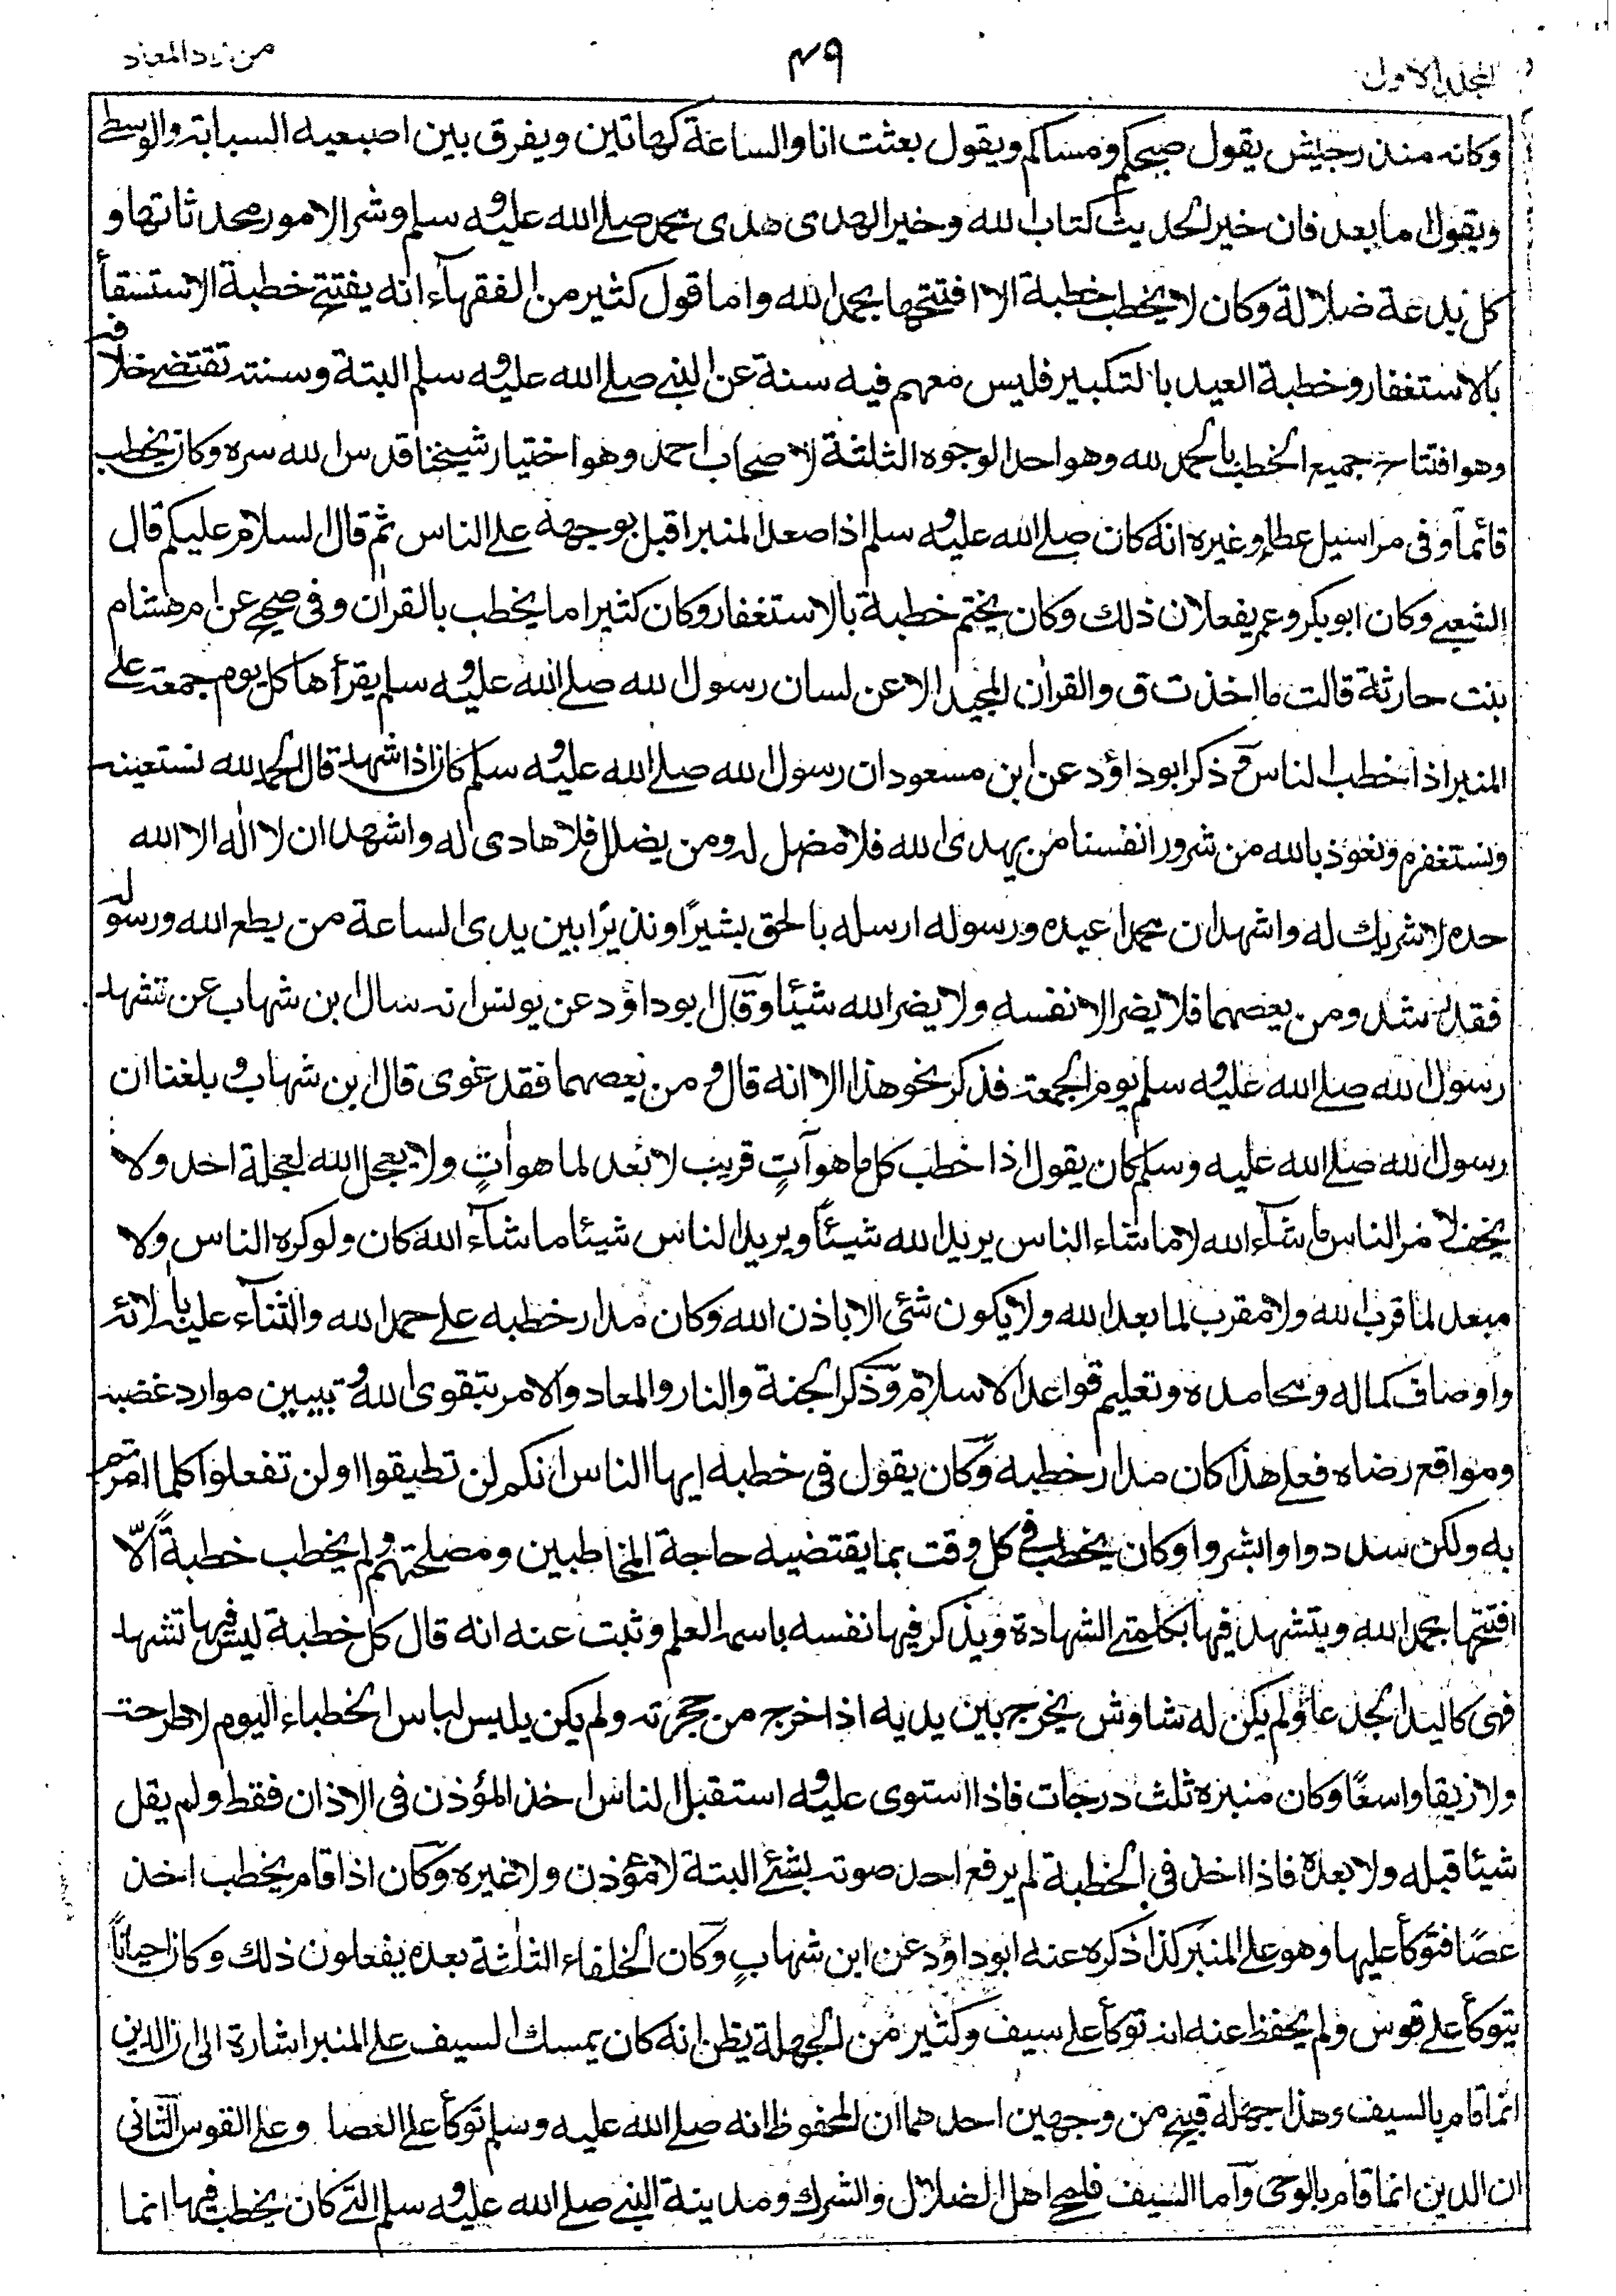 المجلد الاول
٤٩
من زاد المعاد
وكانه منذر جيش يقول صبحكم ومساكم ويقول بعثت انا والساعة كهاتين ويفرق بين اصبعيه السبابة والوسطى
ويقول اما بعد فان خير الحديث كتاب الله وخير الهدى هدى محمد صلى الله عليه وسلم وشر الامور محدثاتها و
كل بدعة ضلالة وكان لا يخطب خطبة الا افتتحها بحمد الله واما قول كثير من الفقهآء انه يفتتح خطبة الاستسقأ
بالاستغفار وخطبة العيد بالتكبير فليس معهم فيه سنة عن النبي صلى الله عليه وسلم البتة وسنته تقتضي خلافه
وهو افتتاح جميع الخطب بالحمد لله وهو احد الوجوه الثلثة لاصحاب احمد وهو اختيار شيخنا قدس الله سره وكان يخطب
قائمآ وفى مراسيل عطاء وغيره انه كان صلى الله عليه وسلم اذا صعد المنبر اقبل بوجهه على الناس ثم قال السلام عليكم قال
الشعبي وكان ابو بكر وعمر يفعلان ذلك وكان يختم خطبة بالاستغفار وكان كثيرا ما يخطب بالقرآن وفى صحيح عن ام هشام
بنت حارثة قالت ما اخذت ق والقرآن المجيد الا عن لسان رسول الله صلى الله عليه وسلم يقرأها كل يوم جمعة على
المنبر اذا خطب الناس وذكر ابو داؤد عن ابن مسعود ان رسول الله صلى الله عليه وسلم كان اذا شهد قال الحمد لله نستعينه
ونستغفره ونعوذ بالله من شرور انفسنا من يهدى الله فلا مضل له ومن يضلل فلا هادى له واشهد ان لا اله الا الله
حده لا شريك له واشهد ان محمدا عبده ورسوله ارسله بالحق بشيرًا ونذيرًا بين يدى الساعة من يطع الله ورسوله
فقد رشد ومن يعصهما فلا يضر الا نفسه ولا يضر الله شيئا وقال ابو داؤد عن يونس انه سال ابن شهاب عن تشهد
رسول الله صلى الله عليه وسلم يوم الجمعة فذكر نحو هذا الا انه قال ومن يعصهما فقد غوى قال ابن شهاب وبلغنا ان
رسول الله صلى الله عليه وسلم كان يقول اذا خطب كل ما هو آتٍ قريب لا بعد لما هو اٰتٍ ولا يعجل الله لعجلة احد ولا
يخف لامر الناس ما شآء الله لا ما شاء الناس يريد الله شيئاً ويريد الناس شيئا ما شآء الله كان ولو كره الناس ولا
مبعد لما قرب الله ولا مقرب لما بعد الله ولا يكون شئ الا باذن الله وكان مدار خطبه على حمد الله والثنآء عليه بالائه
واوصاف كماله ومحامده وتعليم قواعد الاسلام وذكر الجنة والنار والمعاد والامر بتقوى الله وتبيين موارد غضبه
ومواقع رضاه فعلى هذا كان مدار خطبه وكان يقول فى خطبه ايها الناس انكم لن تطيقوا اولن تفعلوا كلما امرتم
به ولكن سددوا وابشروا وكان يخطب فى كل وقت بما يقتضيه حاجة المخاطبين ومصلحتهم ولم يخطب خطبةً الّا
افتتحها بحمد الله ويتشهد فيها بكلمتى الشهادة ويذكر فيها نفسه باسمه العلم وثبت عنه انه قال كل خطبة ليس فيها تشهد
فهى كاليد الجذعا ولم يكن له شاوش يخرج بين يديه اذا خرج من حجرته ولم يكن يلبس لباس الخطباء اليوم لا طرحة
ولا زيقا واسعًا وكان منبره ثلث درجات فاذا استوى عليه استقبل الناس اخذ المؤذن فى الاذان فقط ولم يقل
شيئا قبله ولا بعده فاذا اخذ فى الخطبة لم يرفع احد صوته بشئ البتة لا مؤذن ولا غيره وكان اذا قام يخطب اخذ
عصًا فتوكأ عليها وهو على المنبر كذا ذكره عنه ابو داؤد عن ابن شهابٍ وكان الخلفاء الثلثة بعده يفعلون ذلك وكان احياناً
يتوكأ على قوس ولم يحفظ عنه انه توكأ على سيف وكثير من الجهلة يظن انه كان يمسك السيف على المنبر اشارة الى ان الدين
انما قام بالسيف وهذا جهل قبيح من وجهين احدهما ان المحفوظ انه صلى الله عليه وسلم توكأ على العصا وعلى القوس الثانى
ان الدين انما قام بالوحى وآما السيف فلمحى اهل الضلال والشرك ومدينة النبي صلى الله عليه وسلم التى كان يخطب فيها انما